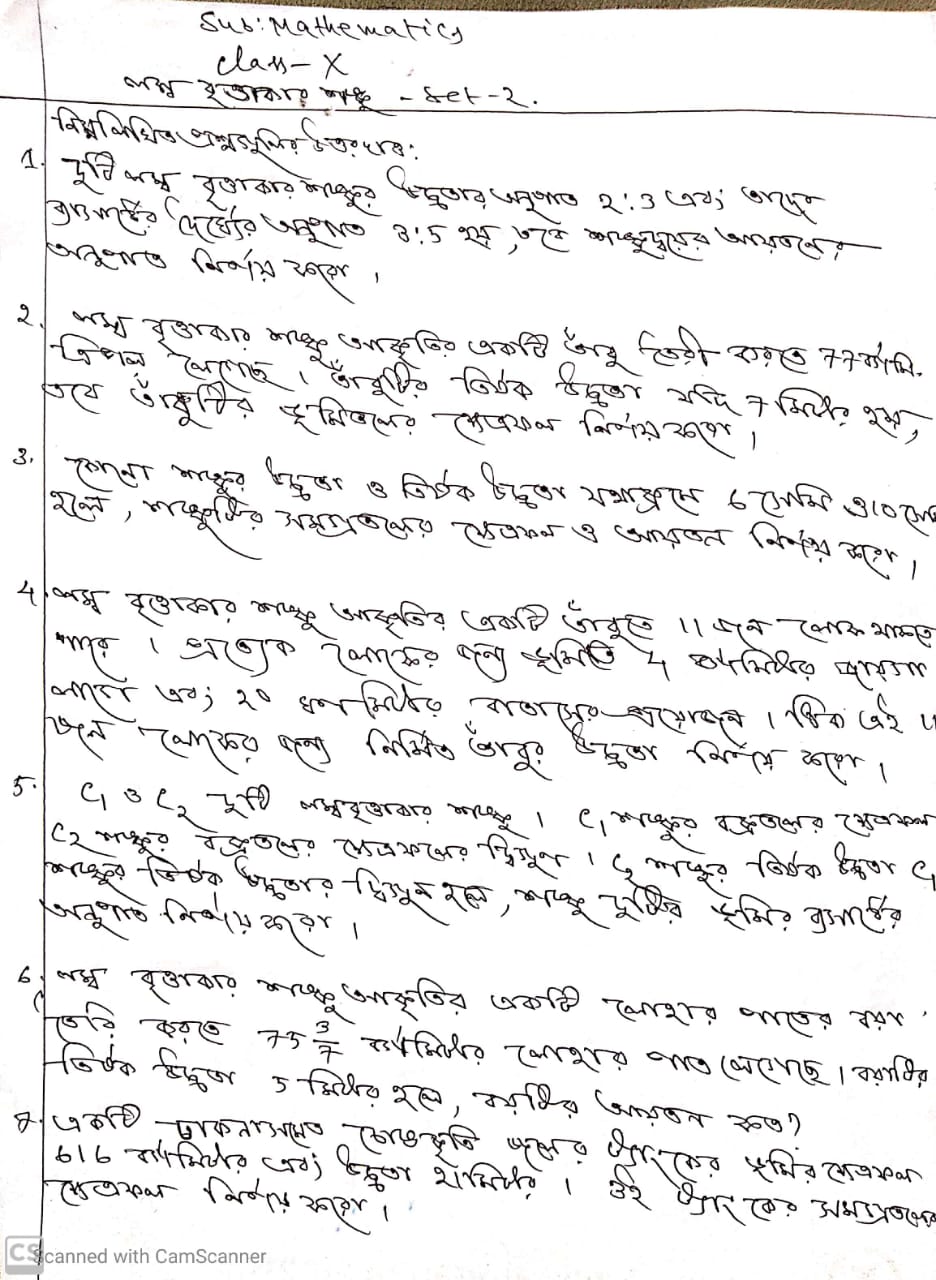 Sub: Mathematics
Class- X
লম্ব বৃত্তাকার শঙ্কু - Set-2.
নিম্নলিখিত প্রশ্নগুলির উত্তর দাও:
1. দুটি লম্ব বৃত্তাকার শঙ্কুর উচ্চতার অনুপাত 2:3 এবং তাদের
ব্যাসার্ধের দৈর্ঘ্যের অনুপাত 3:5 হয়, তবে শঙ্কুদ্বয়ের আয়তনের
অনুপাত নির্ণয় করো।
2. লম্ব বৃত্তাকার শঙ্কু আকৃতির একটি তাঁবু তৈরী করতে 77 বর্গমি.
ত্রিপল লেগেছে। তাঁবুটির তির্যক উচ্চতা যদি 7 মিটার হয়,
তবে তাঁবুটির ভূমিতলের ক্ষেত্রফল নির্ণয় করো।
3. কোনো শঙ্কুর উচ্চতা ও তির্যক উচ্চতা যথাক্রমে 6 সেমি ও 10 সেমি
হলে, শঙ্কুটির সমগ্রতলের ক্ষেত্রফল ও আয়তন নির্ণয় করো।
4. লম্ব বৃত্তাকার শঙ্কু আকৃতির একটি তাঁবুতে 11 জন লোক থাকতে
পারে। প্রত্যেক লোকের জন্য ভূমিতে 4 বর্গমিটার জায়গা
লাগে এবং 20 ঘনমিটার বাতাসের প্রয়োজন। ঠিক এই 11
জন লোকের জন্য নির্মিত তাঁবুর উচ্চতা নির্ণয় করো।
5. C₁ ও C₂ দুটি লম্ববৃত্তাকার শঙ্কু। C₁ শঙ্কুর বক্রতলের ক্ষেত্রফল
C₂ শঙ্কুর বক্রতলের ক্ষেত্রফলের দ্বিগুণ। C₂ শঙ্কুর তির্যক উচ্চতা C₁
শঙ্কুর তির্যক উচ্চতার দ্বিগুন হলে, শঙ্কু দুটির ভূমির ব্যাসার্ধের
অনুপাত নির্ণয় করো।
6. লম্ব বৃত্তাকার শঙ্কু আকৃতির একটি লোহার পাতের বয়া
তৈরি করতে 75 3/7 বর্গমিটার লোহার পাত লেগেছে। বয়াটির
তির্যক উচ্চতা 5 মিটার হলে, বয়াটির আয়তন কত?
7. একটি ঢাকনাসমেত চোঙাকৃতি জলের ট্যাংকের ভূমির ক্ষেত্রফল
616 বর্গমিটার এবং উচ্চতা 21 মিটার। ওই ট্যাংকের সমগ্রতলের
ক্ষেত্রফল নির্ণয় করো।
CS Scanned with CamScanner